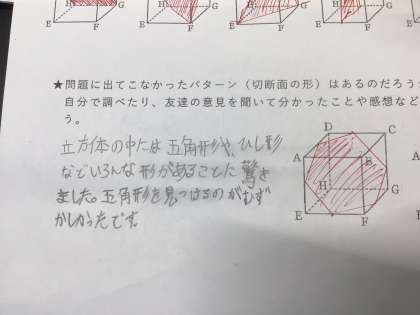 H G
E F
H G
E F
H G
E F
H
E F
★問題に出てこなかったパターン(切断面の形)はあるのだろう
自分で調べたり、友達の意見を聞いて分かったことや感想など
う。
立方体の中には五角形や、ひし形
などいろんな形があることに驚き
ました。五角形を見つけるのがむず
かしかったです。
D C
A B
H G
E F
E